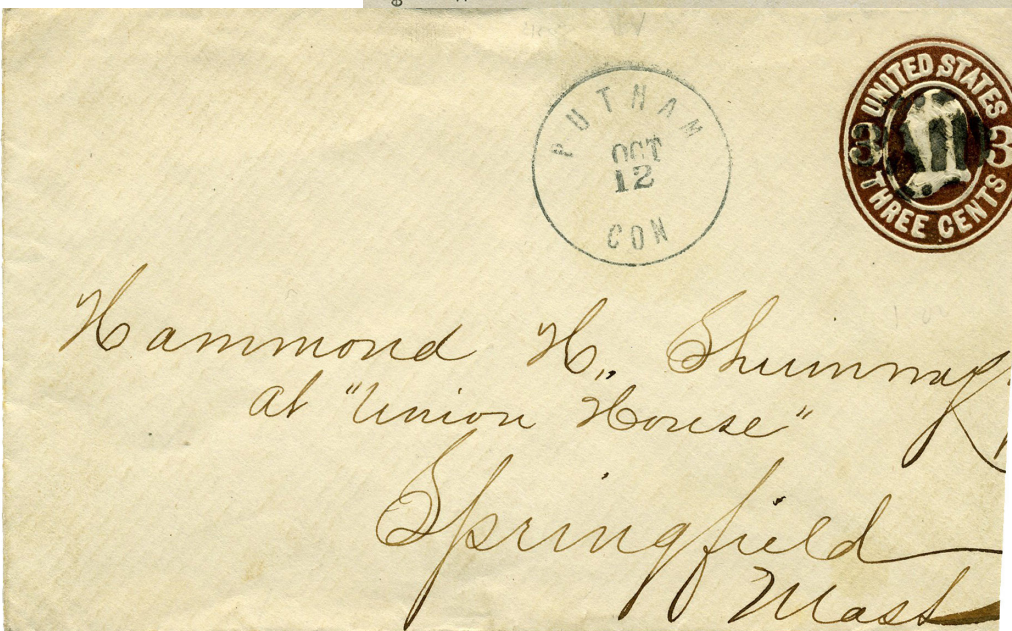 PUTNAM
OCT
12
CON
UNITED STATES
3 3
THREE CENTS
Hammond H.
at "Union House"
Springfield
Mass